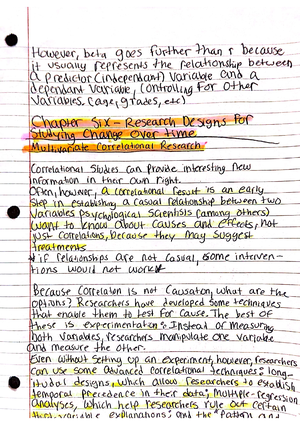 However, beta goes further than r because
it usually represents the relationship between
a predictor (independant) variable and a
dependant variable, controlling for other
variables (age, grades, etc)
Chapter Six- Research Designs for
Studying Change Over time
Multivariate Correlational Research
Correlational studies can provide interesting new
information in their own right.
Often, however, a correlational result is an early
step in establishing a casual relationship between two
variables psychological scientists (among others)
want to know about causes and effects, not
just correlations, because they may suggest
treatments
*if relationships are not casual, some interven-
tions would not work*
Because correlation is not causation, what are the
options? Researchers have developed some techniques
that enable them to test for cause. The best of
these is experimentation: Instead of measuring
both variables, researchers manipulate one variable
and measure the other.
Even without setting up an experiment, however, researchers
can use some advanced correlational techniques: long-
itudal designs, which allow researchers to establish
temporal precedence in their data; Multiple-regression
analyses, which help researchers rule out certain
third variable explanations; and the "pattern and